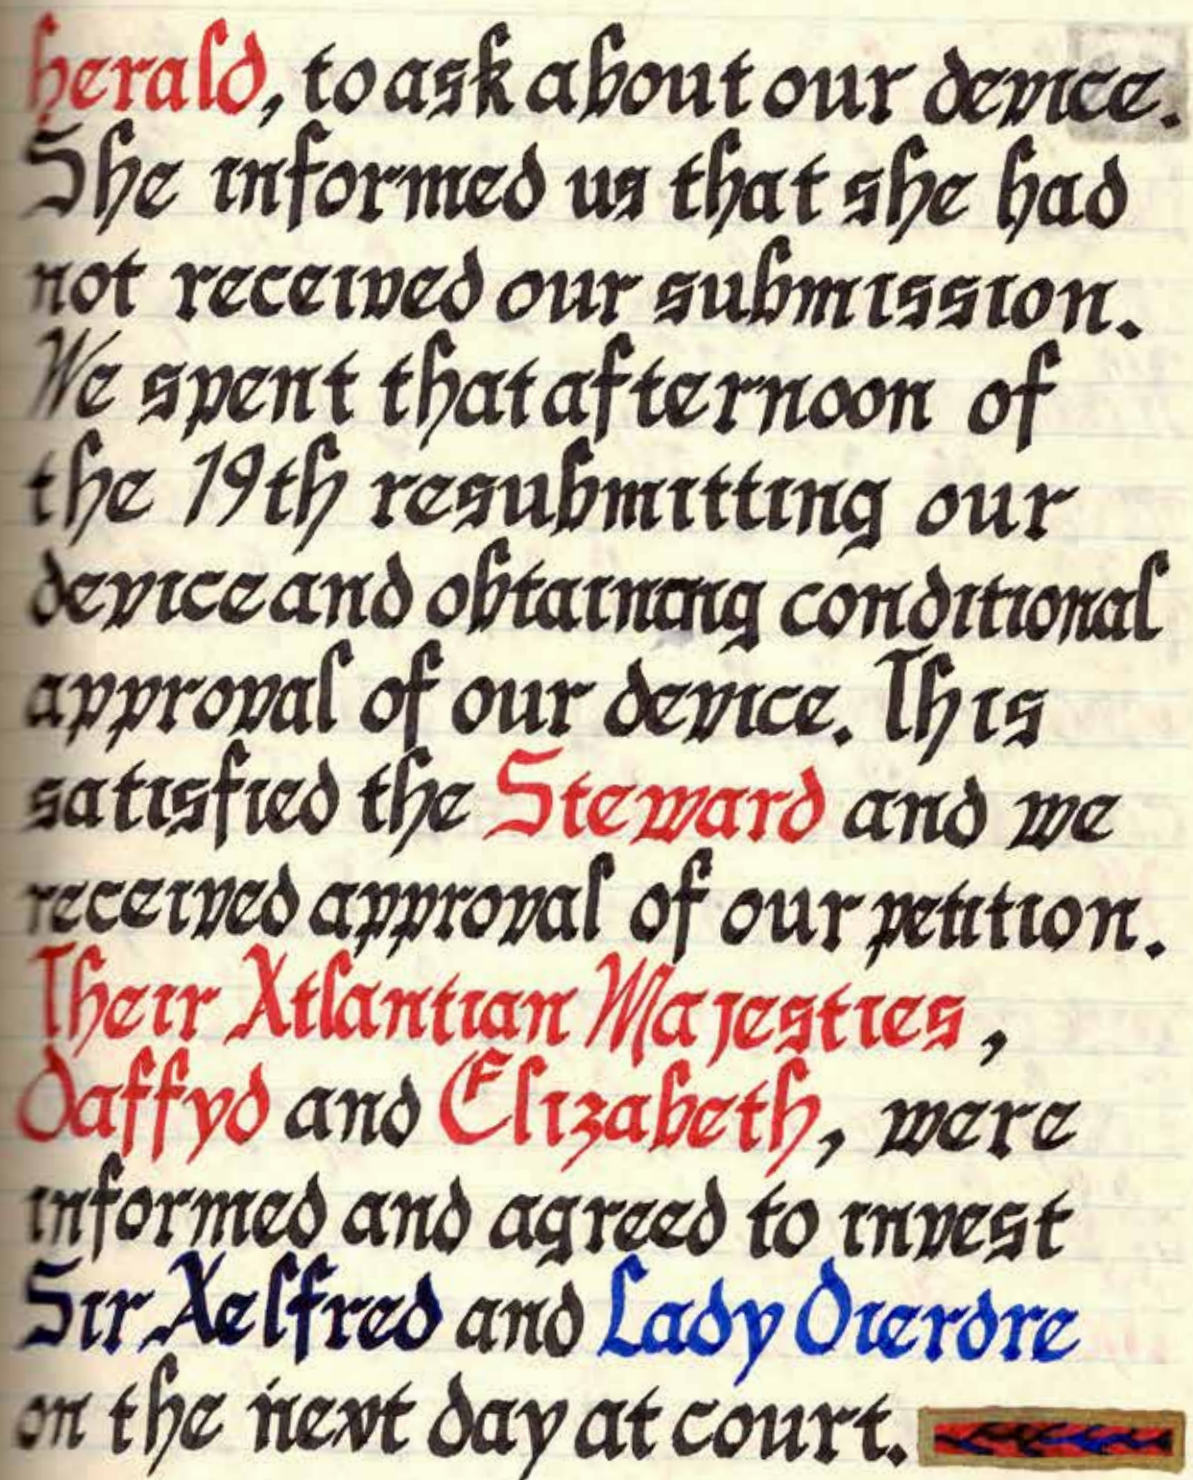 herald, to ask about our device.
She informed us that she had
not received our submission.
We spent that afternoon of
the 19th resubmitting our
device and obtaining conditional
approval of our device. This
satisfied the Steward and we
received approval of our petition.
Their Atlantian Majesties,
Daffyd and Elizabeth, were
informed and agreed to invest
Sir Aelfred and Lady Dierdre
on the next day at court.